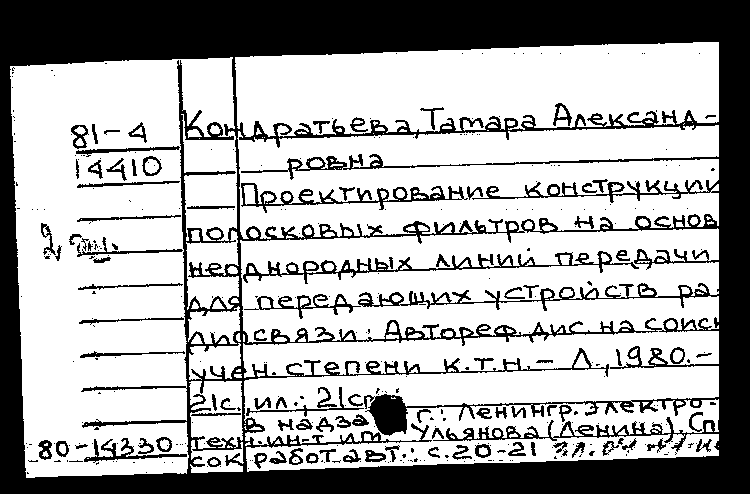 81-4 Кондратьева, Тамара Александ-
14410 ровна
Проектирование конструкций
полосковых фильтров на основ
2
неоднородных линий передачи
для передающих устройств ра-
диосвязи: Автореф. дис. на соиск
учен. степени к.т.н.- Л., 1980.-
21с., ил.; 21с
В надза г.: Ленингр. электро-
техн. ин-т им. Ульянова (Ленина). Сп
80-14330 сок работ авт.: с.20-21